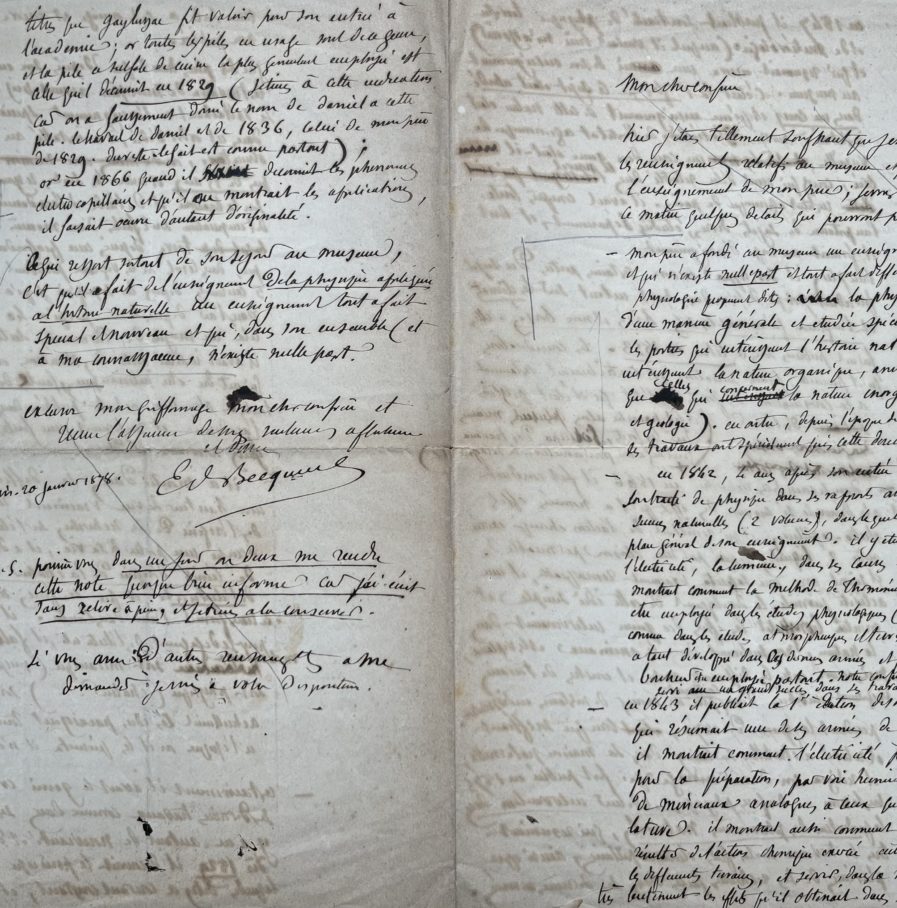 titres que Gaylussac fit valoir pour son entrée à
l'académie; or toutes les piles en usage sont de ce genre,
et la pile à sulfate de cuivre la plus generalement employée est
celle qu'il décrivit en 1829 (je tiens à cette indication
car on a faussement donné le nom de Daniel a cette
pile. le travail de Daniel est de 1836, celui de mon père
de 1829. du reste le fait est connu partout);
or en 1866 quand il decouvrit les phenomenes
electrocapillaires et qu'il en montrait les applications,
il faisait oeuvre d'autant d'originalité.
Ce qui ressort surtout de son sejour au museum,
c'est qu'il a fait de l'enseignement de la physique appliquée
a l'histoire naturelle un enseignement tout a fait
special et nouveau et qui, dans son ensemble (et
a ma connaissance, n'existe nulle part.
excusez mon griffonnage mon cher confrère et
recevez l'assurance de mes sentiments affectueux
et devoués
Ed Becquerel
20 janvier 1878.
P.S. pourriez vous dans un jour ou deux me rendre
cette note quoique bien informe car j'ai écrit
sans relire à peine et je tiens a la conserver.
Si vous avez d'autres renseignements a me
demander je suis a votre disposition.
Mon cher confrère
hier j'etais tellement souffrant que je
les renseignements relatifs au museum et
l'enseignement de mon père; je vous
ce matin quelques details qui pourront
— mon père a fondé au museum un enseignement
et qui n'existe nulle part et tout a fait different
physiologie proprement dite: la phys
d'une manière générale et etudiée spécia
les parties qui intéressent l'histoire nat
intéressent la nature organique, an
que celles qui concernent la nature inorg
et geologie). en outre, depuis l'époque de
ses travaux ont spécialement
— en 1842, 4 ans après son entrée
son traité de physique dans ses rapports a
sciences naturelles (2 volumes), dans lequel
plan général de son enseignement. il y etu
l'électricité, la lumière, dans ses causes
montrait comment la methode
etre employée dans les études physiologiques (
comme dans les etudes atmospheriques et terr
a tant développé dans ces derniers années et
partout. notre conf
avec un grand succès dans ses trava
— en 1843 il publiait la 1re edition de son
qui résumait une de ses années de
il montrait comment l'électricité p
pour la préparation, par voie humide
de minéraux analogues à ceux qu
la nature. il montrait aussi comment
résulter de l'action chimique exercée
les differents terrains, et suivre, dans la n
très lentement les effets qu'il obtenait dans